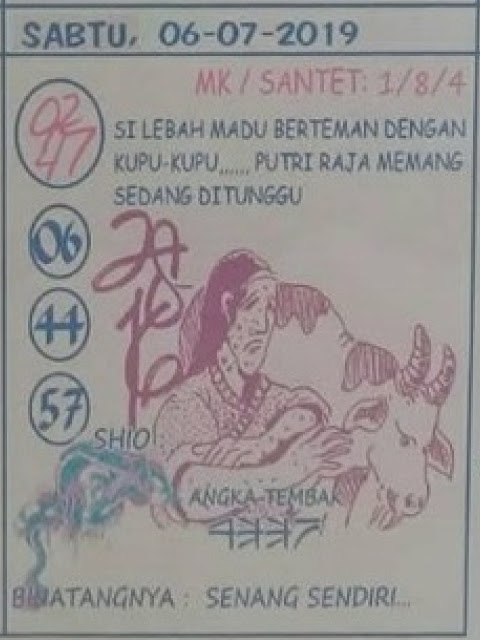 SABTU, 06-07-2019
MK / SANTET: 1/8/4
SI LEBAH MADU BERTEMAN DENGAN
KUPU-KUPU,,,,,, PUTRI RAJA MEMANG
SEDANG DITUNGGU
06
44
57
SHIO :
ANGKA TEMBAK
BINATANGNYA : SENANG SENDIRI...